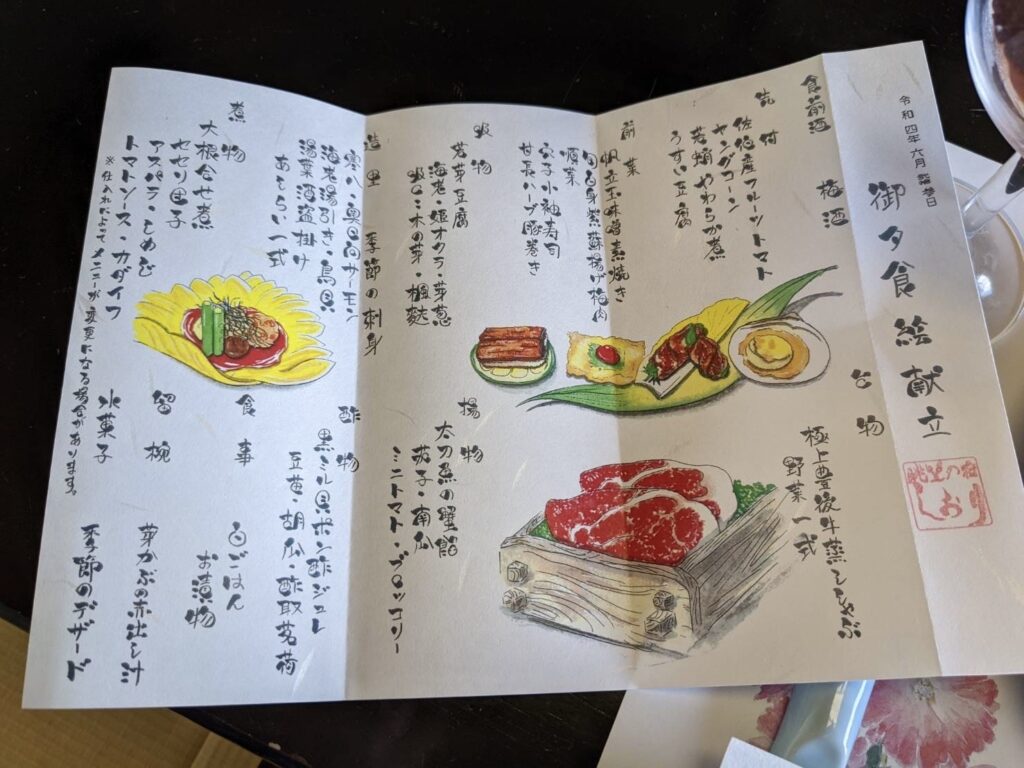 令和四年六月参日
御夕食絵献立
眺望の宿
しおり
食前酒 梅酒
先付
佐伯産フルーツトマト
ヤングコーン
若鮹やわらか煮
うすい豆腐
前菜
帆立玉味噌素焼き
旬白身紫蘇揚げ梅肉
酒菜
穴子小袖寿司
甘長ハーブ豚巻き
吸物
若芽豆腐
海老・姫オクラ・芽葱
吸口 木の芽・楓麩
造里 季節の刺身
寒八・奥日向サーモン
海老湯引き・鳥貝
湯葉酒盗掛け
あしらい一式
煮物
大根含せ煮
セセリ団子
アスパラ・しめじ
トマトソース・カダイフ
台物
極上豊後牛蒸ししゃぶ
野菜一式
揚物
太刀魚の蟹餡
茄子・南瓜
ミニトマト・ブロッコリー
酢物
黒ミル貝ポン酢ジュレ
豆苗・胡瓜・酢取茗荷
食事
白ごはん
お漬物
留椀
芽かぶの赤出し汁
水菓子
季節のデザート
※仕入れによってメニューが変更になる場合があります。